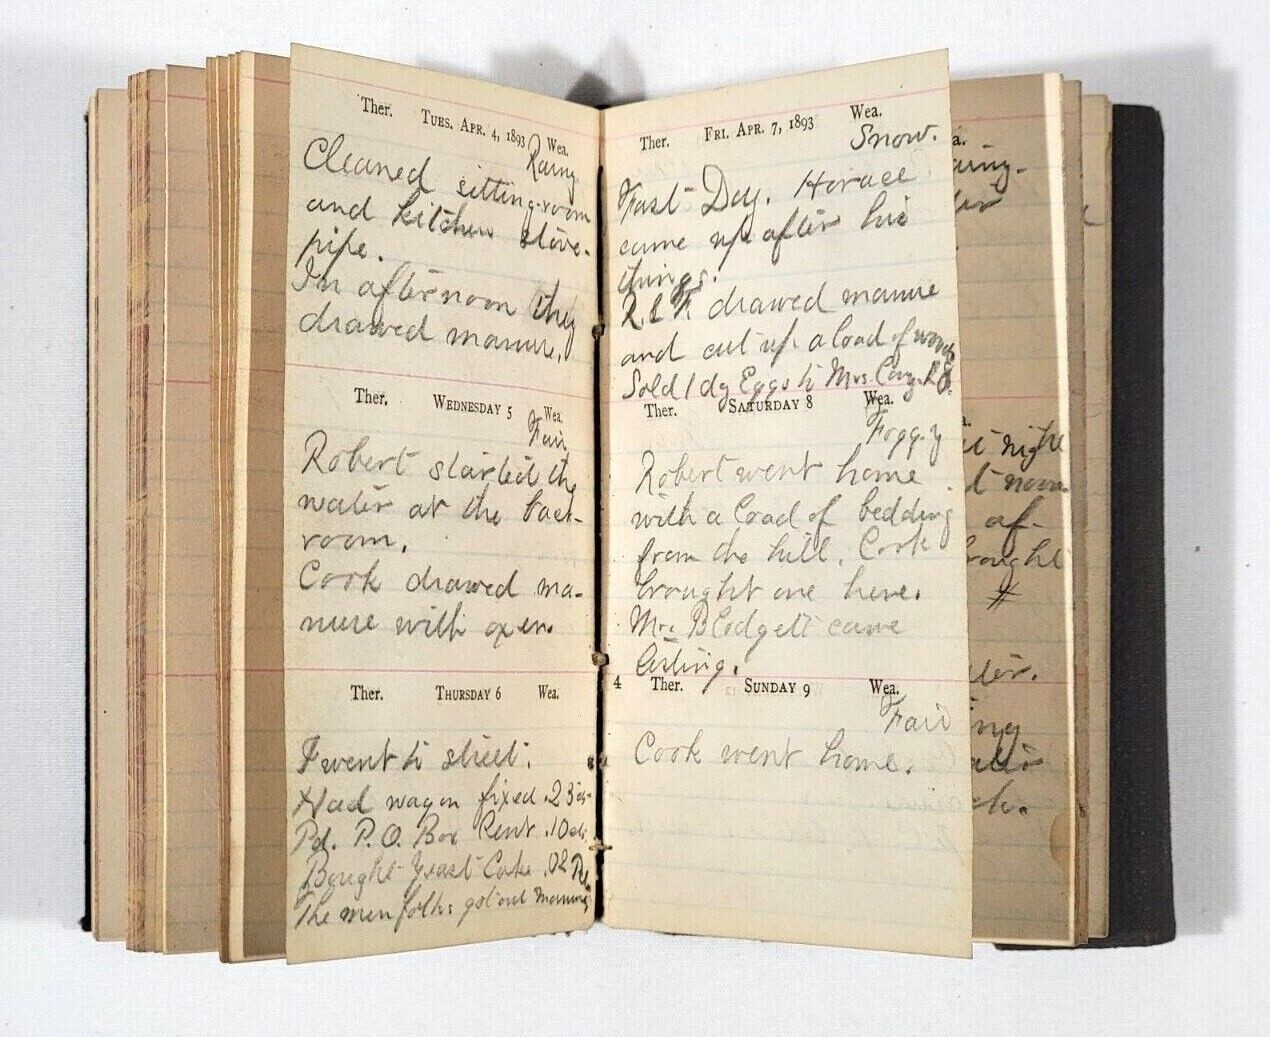 Ther. TUES. APR. 4, 1893 Wea.
Rainy
Cleaned sitting-room
and kitchen stove-
pipe.
In afternoon they
drawed manure.
Ther. WEDNESDAY 5 Wea.
Fair
Robert started the
water at the back-
room.
Cook drawed ma-
nure with oxen.
Ther. THURSDAY 6 Wea.
I went to street.
Had wagon fixed .23 cts
Pd. P.O. Box Rent .10 cts.
Bought Yeast Cake .02
The men folks got out manure
Ther. FRI. APR. 7, 1893 Wea.
Snow.
Fast Day. Horace
came up after his
things.
drawed manure
and cut up a load of wood
Sold 1 dz Eggs to Mrs.
Ther. SATURDAY 8 Wea.
Foggy
Robert went home
with a load of bedding
from the hill. Cook
brought one here.
Mrs Blodgett came
4 Ther. SUNDAY 9 Wea.
Fair
Cook went home.
night
af-
#